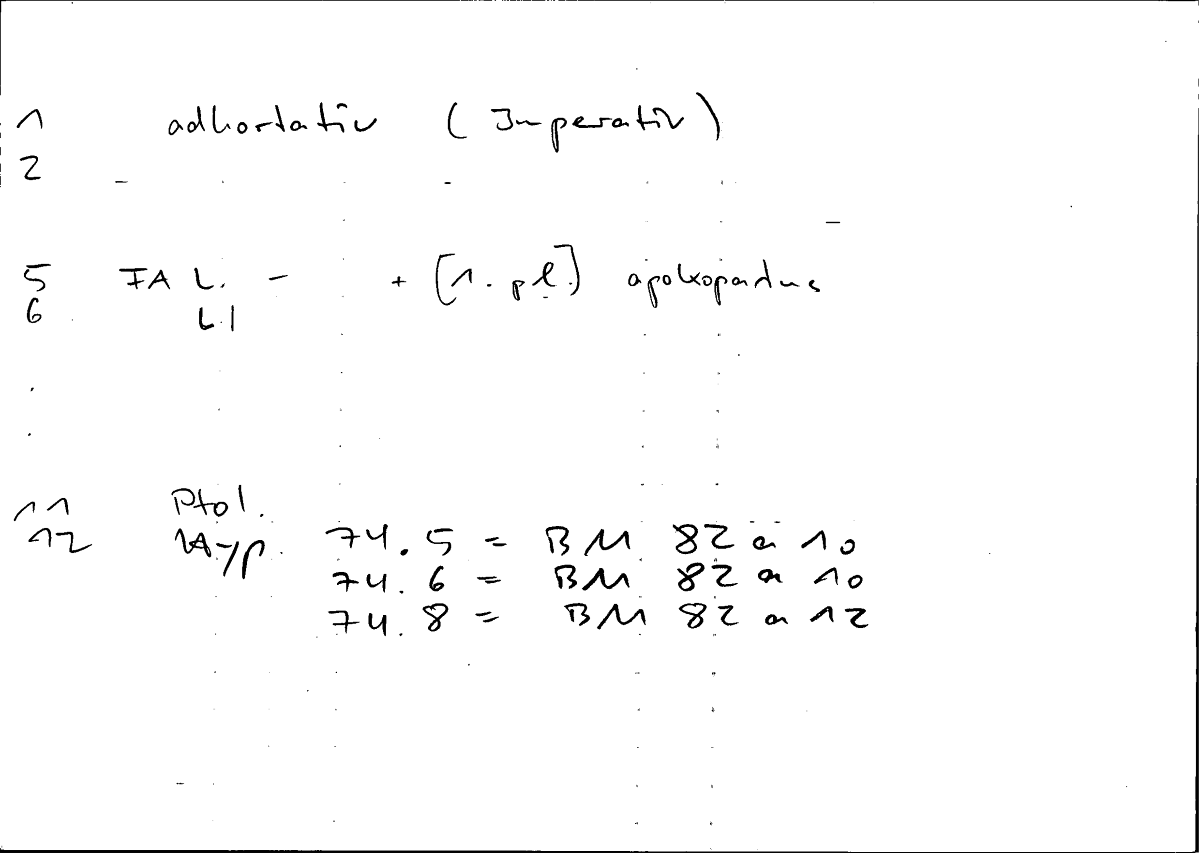 1 adhortativ (Imperativ)
2
5 FA L. - + [1. pl.] apokopatus
6 L.I
.
.
11 Ptol.
12 Hyp. 74.5 = BM 82 a 10
74.6 = BM 82 a 10
74.8 = BM 82 a 12